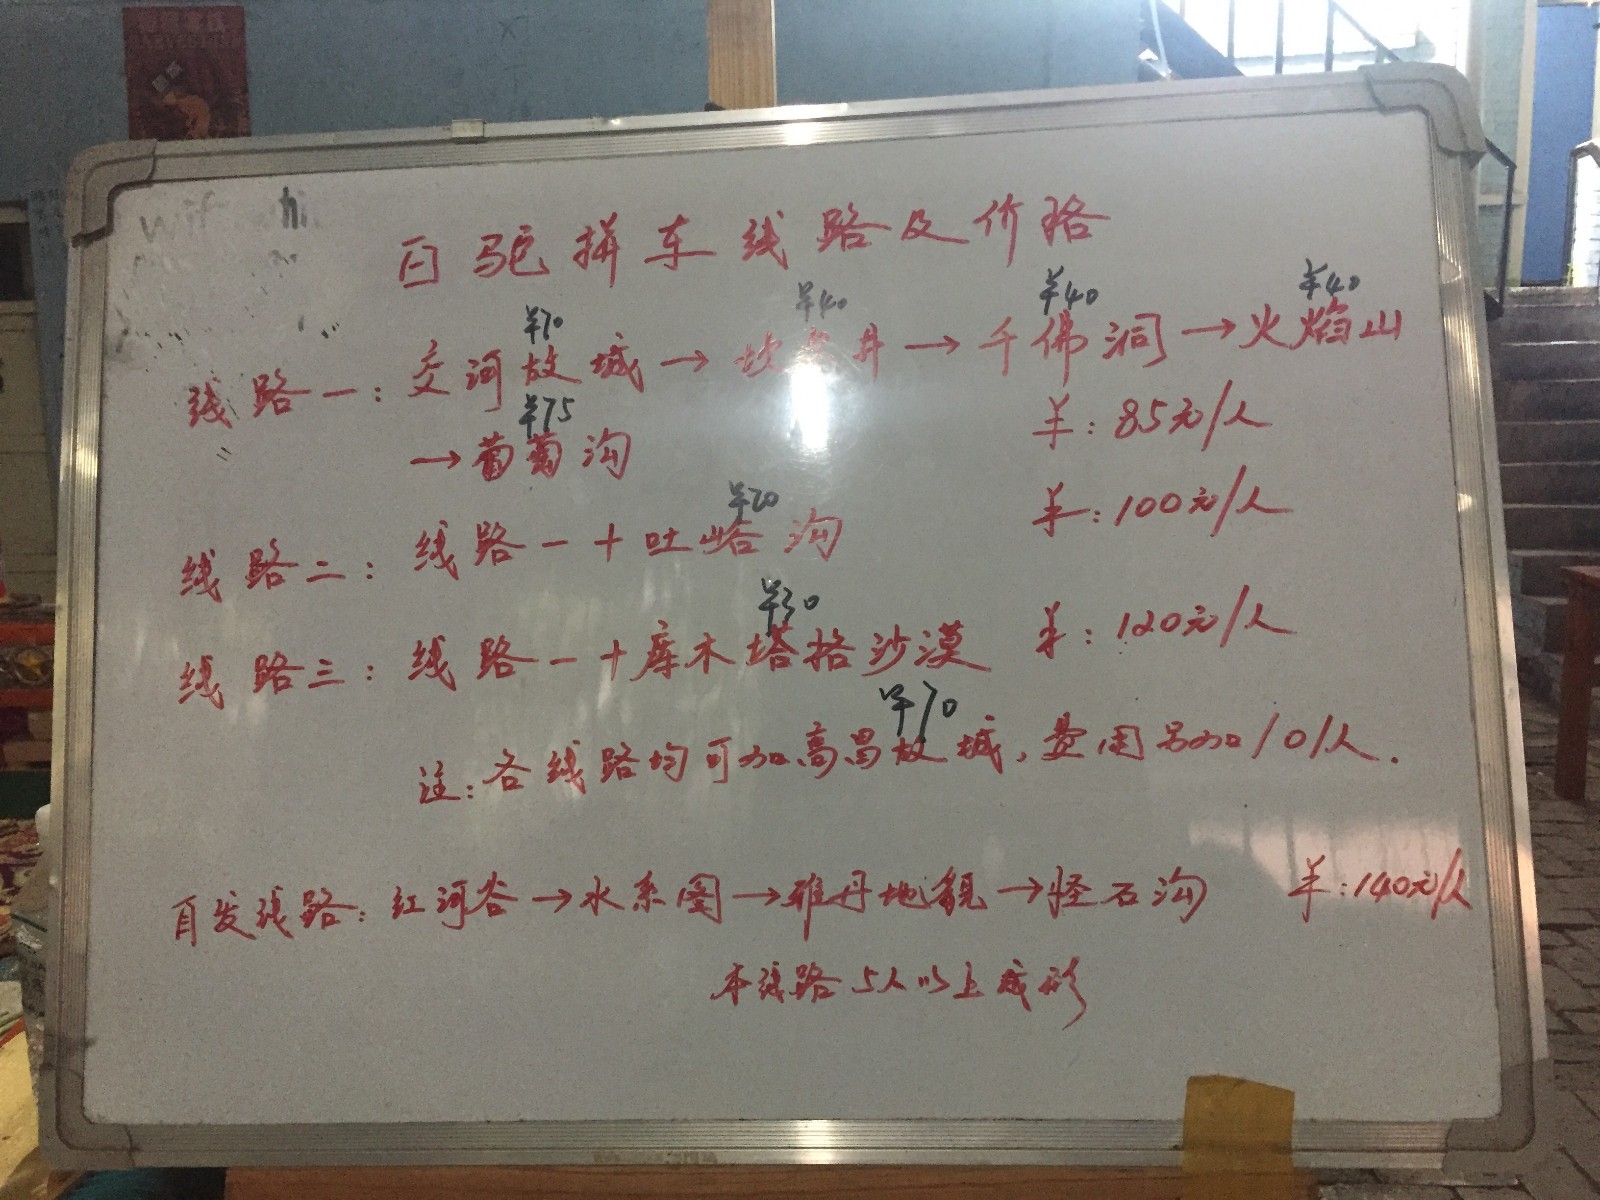 wifi
白驼拼车线路及价格
¥70 ¥40 ¥40 ¥40
线路一：交河故城→坎儿井→千佛洞→火焰山
¥75
→葡萄沟 ¥：85元/人
¥20
线路二：线路一+吐峪沟 ¥：100元/人
¥30
线路三：线路一+库木塔格沙漠 ¥：120元/人
¥70
注：各线路均可加高昌故城，费用另加10/人.
自发线路：红河谷→水系图→雅丹地貌→怪石沟 ¥：140元/人
本线路5人以上成形